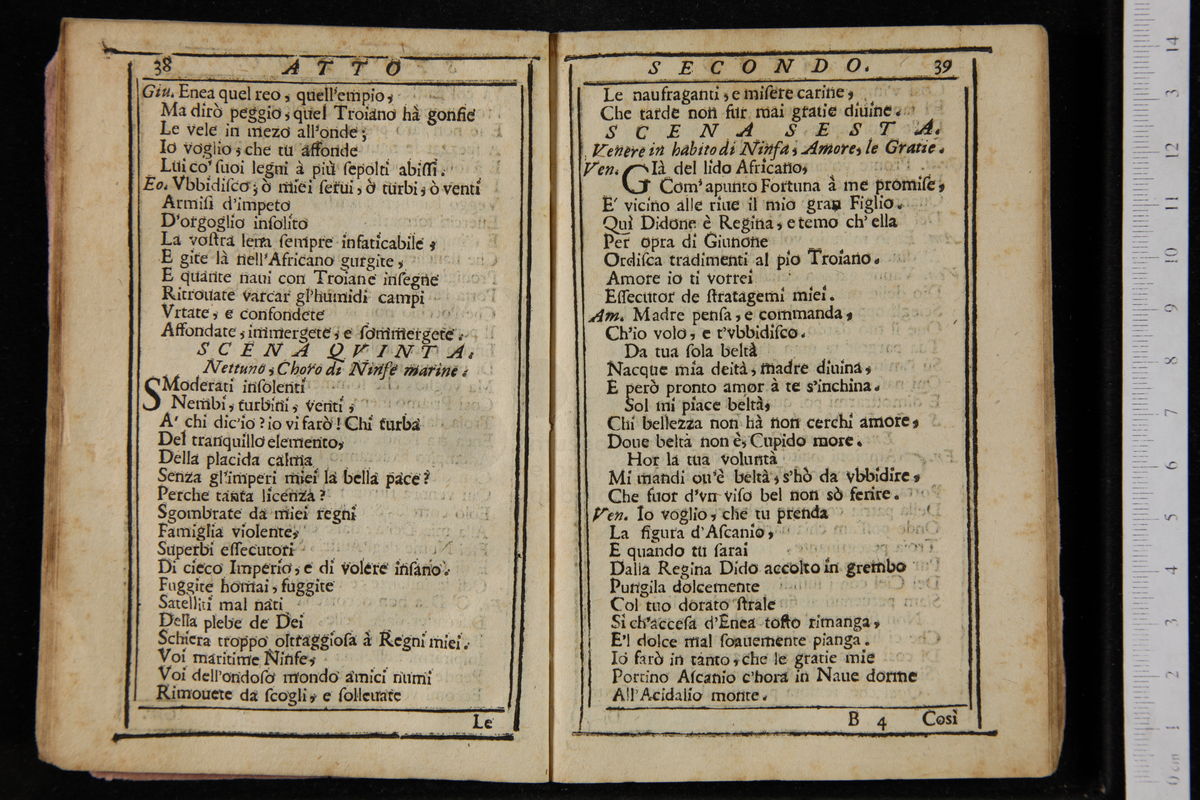 38 ATTO
Giu. Enea quel reo, quell'empio,
Ma dirò peggio, quel Troiano hà gonfie
Le vele in mezo all'onde;
Io voglio, che tu affonde
Lui co' suoi legni à più sepolti abissi.
Eo. Vbbidisco; ò miei serui, ò turbi, ò venti
Armisi d'impeto
D'orgoglio insolito
La vostra lena sempre infaticabile,
E gite là nell'Africano gurgite,
E quante naui con Troiane insegne
Ritrouate varcar gl'humidi campi
Vrtate, e confondete
Affondate, immergete, e sommergete.
SCENA QVINTA.
Nettuno, Choro di Ninfe marine.
SModerati insolenti
Nembi, turbini, venti,
A' chi dic'io? io vi farò! Chi turba
Del tranquillo elemento,
Della placida calma
Senza gl'imperi miei la bella pace?
Perche tanta licenza?
Sgombrate da miei regni
Famiglia violente,
Superbi essecutori
Di cieco Imperio, e di volere insano.
Fuggite homai, fuggite
Satelliti mal nati
Della plebe de Dei
Schiera troppo oltraggiosa à Regni miei.
Voi maritime Ninfe,
Voi dell'ondoso mondo amici numi
Rimouete da scogli, e solleuate
Le
SECONDO. 39
Le naufraganti, e misere carine,
Che tarde non fur mai gratie diuine.
SCENA SESTA.
Venere in habito di Ninfa, Amore, le Gratie.
Ven. GIà del lido Africano,
Com'apunto Fortuna à me promise,
E' vicino alle riue il mio gran Figlio.
Quì Didone è Regina, e temo ch'ella
Per opra di Giunone
Ordisca tradimenti al pio Troiano.
Amore io ti vorrei
Essecutor de stratagemi miei.
Am. Madre pensa, e commanda,
Ch'io volo, e t'vbbidisco.
Da tua sola beltà
Nacque mia deità, madre diuina,
E però pronto amor à te s'inchina.
Sol mi piace beltà,
Chi bellezza non hà non cerchi amore,
Doue beltà non è, Cupido more.
Hor la tua voluntà
Mi mandi ou'è beltà, s'hò da vbbidire,
Che fuor d'vn viso bel non sò ferire.
Ven. Io voglio, che tu prenda
La figura d'Ascanio,
E quando tu sarai
Dalla Regina Dido accolto in grembo
Pungila dolcemente
Col tuo dorato strale
Si ch'accesa d'Enea tosto rimanga,
E'l dolce mal soauemente pianga.
Io farò in tanto, che le gratie mie
Portino Ascanio c'hora in Naue dorme
All'Acidalio monte.
B 4 Così